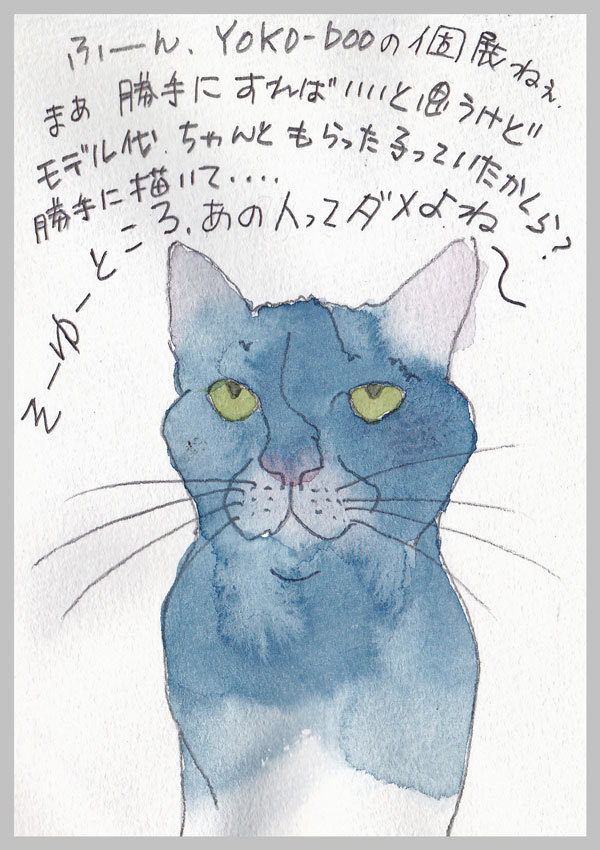 ふーん、YOKO-booの個展ねぇ、
まぁ 勝手に すれば いいと思うけど
モデル代、ちゃんと もらった
勝手に描いて・・・・
そーゆーところ、あの人ってダメよね〜